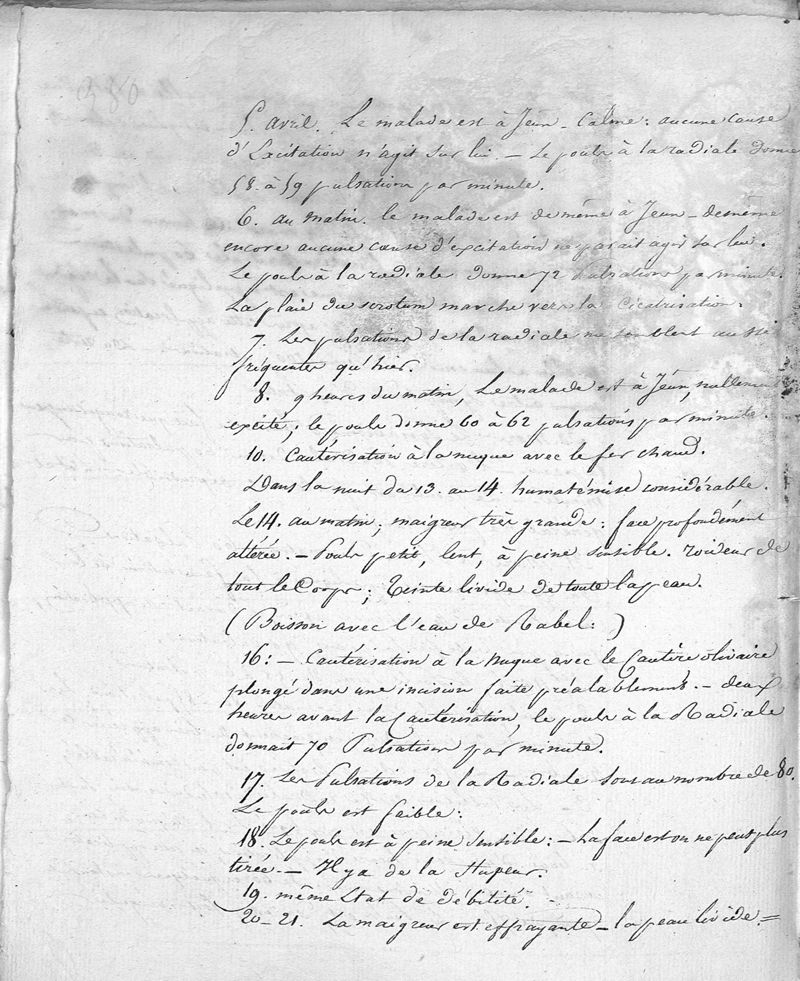 5. avril. Le malade est à Jeun - Calme: aucune cause
d'Excitation n'agit sur lui. - Le pouls à la radiale donne
58. à 59 pulsations par minute.
6. au matin. le malade est de même à Jeun - de même
encore aucune cause d'excitation ne parait agir sur lui.
Le pouls à la radiale donne 72 Pulsations par minute.
La plaie du scrotum marche vers la Cicatrisation.
7. Les pulsations de la radiale ne semblent aussi
fréquentes qu'hier.
8. 9 heures du matin, Le malade est à Jeun, nullement
excité; le pouls donne 60 à 62 pulsations par minute.
10. Cautérisation à la nuque avec le fer chaud.
Dans la nuit du 13. au 14. humatémise considérable.
Le 14. au matin; maigreur très grande: face profondément
altérée. - Pouls petit, lent, à peine sensible. roideur de
tout le Corps; Teinte livide de toute la peau.
(Boisson avec l'eau de Rabel:)
16: - Cautérisation à la nuque avec le Cautère olivaire
plongé dans une incision faite préalablement. - deux
heures avant la Cautérisation, le pouls à la Radiale
donnait 70 Pulsations par minute.
17. Les Pulsations de la Radiale sont au nombre de 80.
Le pouls est faible:
18. Le pouls est à peine sensible: - La face est on ne peut plus
tirée. - Il y a de la Stupeur.
19. même Etat de débilité. -
20-21. La maigreur est effrayante - la peau livide. =